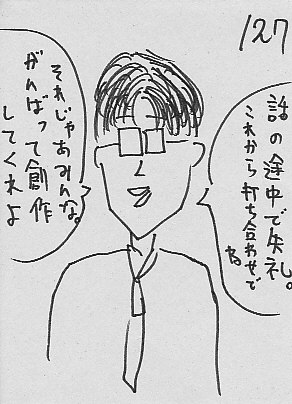 127
話の途中で失礼。
これから打ち合わせで
ね
それじゃあみんな。
がんばって創作
してくれよ